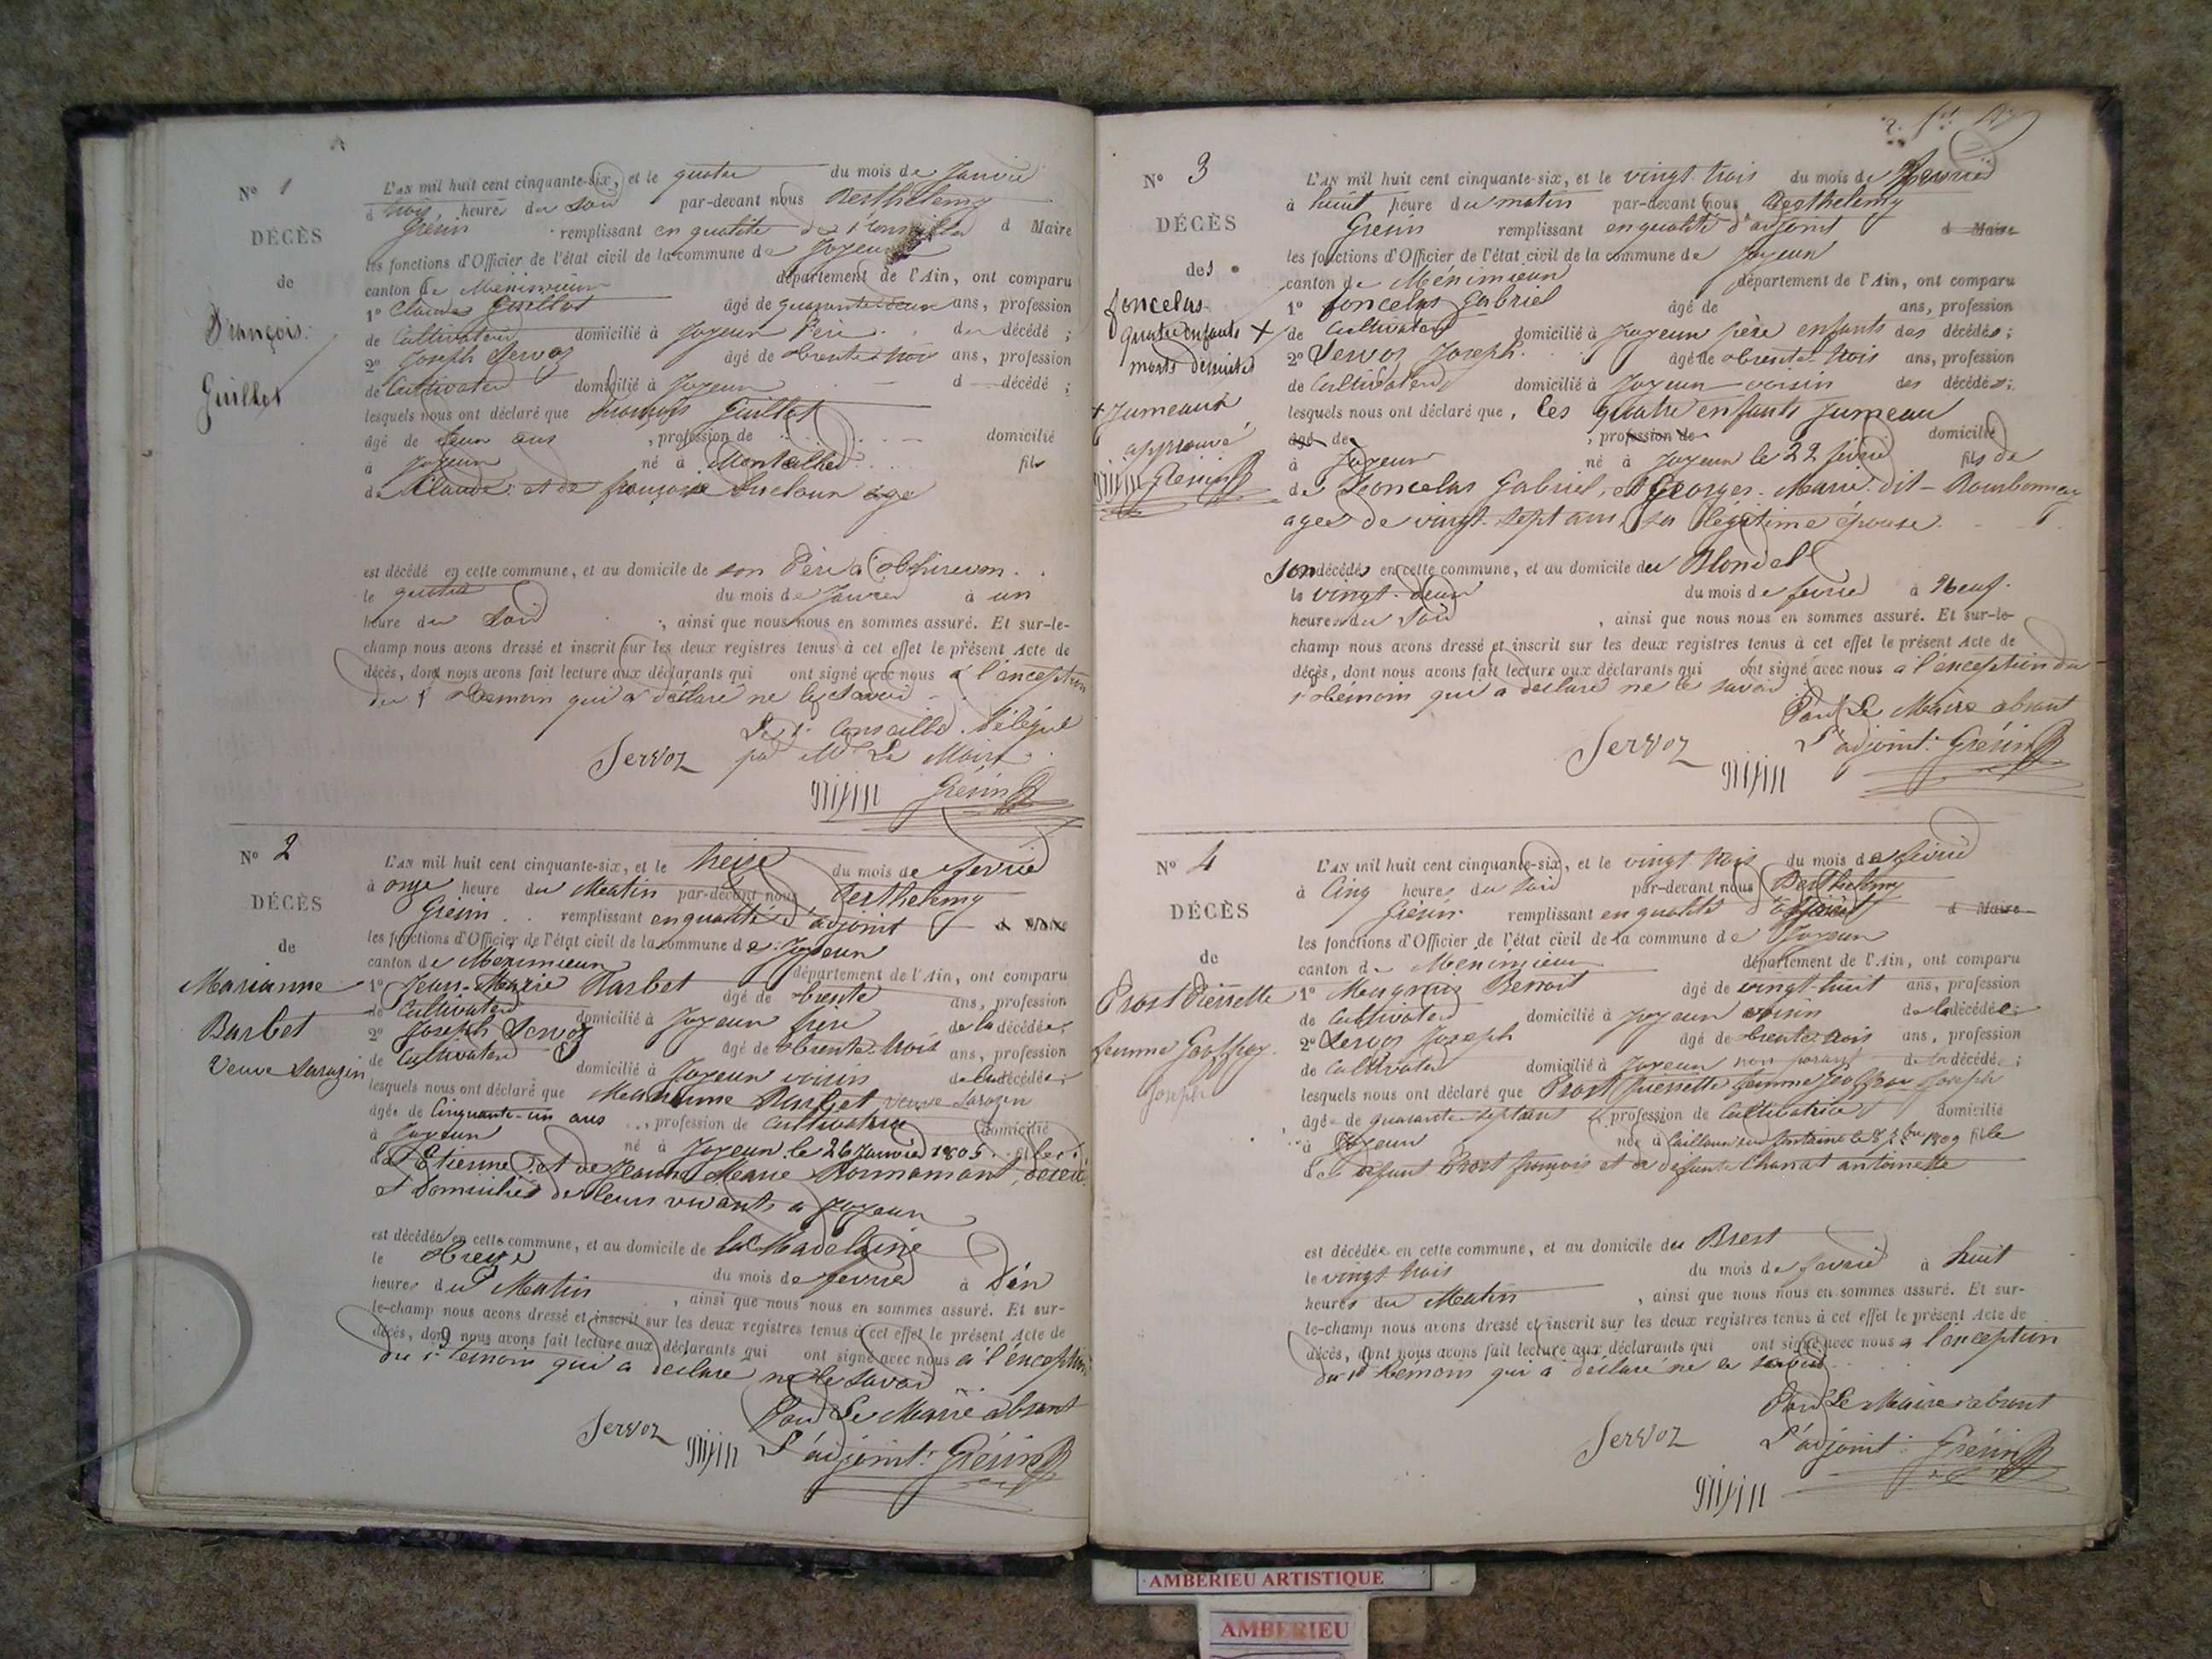 N° 1
DÉCÈS
de
François
Guillot
L'AN mil huit cent cinquante-six, et le quatre du mois de Janvier
à trois heures du soir par-devant nous Berthelemy
Grésin remplissant en qualité de 1er Conseiller d Maire
les fonctions d'Officier de l'état civil de la commune de Joyeux
canton de Méximieux département de l'Ain, ont comparu
1° Claude Guillot âgé de quarante-deux ans, profession
de Cultivateur domicilié à Joyeux Père du décédé ;
2° Joseph Servoz âgé de trente trois ans, profession
de Cultivateur domicilié à Joyeux d décédé ;
lesquels nous ont déclaré que François Guillot
âgé de deux ans , profession de domicilié
à Joyeux né à fils
de Claude et de françoise
est décédé en cette commune, et au domicile de son Père à
le quatre du mois de Janvier à un
heure du soir , ainsi que nous nous en sommes assuré. Et sur-le-
champ nous avons dressé et inscrit sur les deux registres tenus à cet effet le présent Acte de
décès, dont nous avons fait lecture aux déclarants qui ont signé avec nous à l'exception
du 1er témoin qui a déclaré ne le savoir
Le 1er Conseiller délégué
Servoz par Mr Le Maire
Grésin
N° 2
DÉCÈS
de
Marianne
Barbet
Veuve Sarazin
L'AN mil huit cent cinquante-six, et le treize du mois de fevrier
à onze heure du Matin par-devant nous Berthelemy
Grésin remplissant en qualité d'adjoint d Maire
les fonctions d'Officier de l'état civil de la commune de Joyeux
canton de Meximieux département de l'Ain, ont comparu
1° Jean-Marie Barbet âgé de trente ans, profession
de Cultivateur domicilié à Joyeux frère de la décédée ;
2° Joseph Servoz âgé de trente-trois ans, profession
de Cultivateur domicilié à Joyeux voisin de la décédée ;
lesquels nous ont déclaré que Marianne Barbet veuve Sarazin
âgée de Cinquante-un ans , profession de cultivatrice domicilié
à Joyeux né à Joyeux le 26 Janvier 1805 fille
de Etienne et de Jeanne Marie
et domiciliés de leurs vivants à Joyeux
est décédée en cette commune, et au domicile de la Madelaine
le treize du mois de fevrier à Six
heures du Matin , ainsi que nous nous en sommes assuré. Et sur-
le-champ nous avons dressé et inscrit sur les deux registres tenus à cet effet le présent Acte de
décès, dont nous avons fait lecture aux déclarants qui ont signé avec nous à l'exception
du 1er témoin qui a déclaré ne le savoir
Pour Le Maire absant
Servoz L'adjoint Grésin
N° 3
DÉCÈS
des
Joncelas
quatre enfants +
morts
+ Jumeaux
approuvé
Grésin
L'AN mil huit cent cinquante-six, et le vingt-trois du mois de fevrier
à huit heure du matin par-devant nous Berthelemy
Grésin remplissant en qualité d'adjoint d Maire
les fonctions d'Officier de l'état civil de la commune de Joyeux
canton de Méximieux département de l'Ain, ont comparu
1° Joncelas Gabriel âgé de ans, profession
de Cultivateur domicilié à Joyeux père enfants des décédés ;
2° Servoz Joseph âgé de trente-trois ans, profession
de Cultivateur domicilié à Joyeux voisin des décédés ;
lesquels nous ont déclaré que, les quatre enfants Jumeau
âgé de , profession de domicilié
à Joyeux né à Joyeux le 22 février fils de
de Joncelas Gabriel, et Georges Marie dit
agée de vingt-sept ans, sa légitime épouse.
son décédés en cette commune, et au domicile du Blondel
le vingt-deux du mois de fevrier à Neuf
heures du Soir , ainsi que nous nous en sommes assuré. Et sur-le-
champ nous avons dressé et inscrit sur les deux registres tenus à cet effet le présent Acte de
décès, dont nous avons fait lecture aux déclarants qui ont signé avec nous à l'exception du
1er témoin qui a declaré ne le savoir
Pour Le Maire absant
Servoz L'adjoint Grésin
N° 4
DÉCÈS
de
Prost Pierrette
femme Geoffray
Joseph
L'AN mil huit cent cinquante-six, et le vingt trois du mois de fevrier
à Cinq heures du soir par-devant nous Berthelemy
Grésin remplissant en qualité d'adjoint d Maire
les fonctions d'Officier de l'état civil de la commune de Joyeux
canton de Méximieux département de l'Ain, ont comparu
1° Benoit âgé de vingt-huit ans, profession
de Cultivateur domicilié à Joyeux voisin de la décédée
2° Servoz Joseph âgé de trente-trois ans, profession
de Cultivateur domicilié à Joyeux non parant de la décédé ;
lesquels nous ont déclaré que Prost Pierrette femme Geoffray Joseph
âgée de quarante-sept ans profession de Cultivatrice domicilié
à Joyeux née à Cailloux sur fontaine le 1809 fille
de défunt Prost françois et de défunte antoinette
est décédée en cette commune, et au domicile du Brest
le vingt trois du mois de fevrier à huit
heures du Matin , ainsi que nous nous en sommes assuré. Et sur-
le-champ nous avons dressé et inscrit sur les deux registres tenus à cet effet le présent Acte de
décès, dont nous avons fait lecture aux déclarants qui ont signé avec nous à l'exception
du 1er témoin qui a déclaré ne le savoir
Pour Le Maire absant
Servoz L'adjoint Grésin
AMBERIEU ARTISTIQUE
AMBERIEU